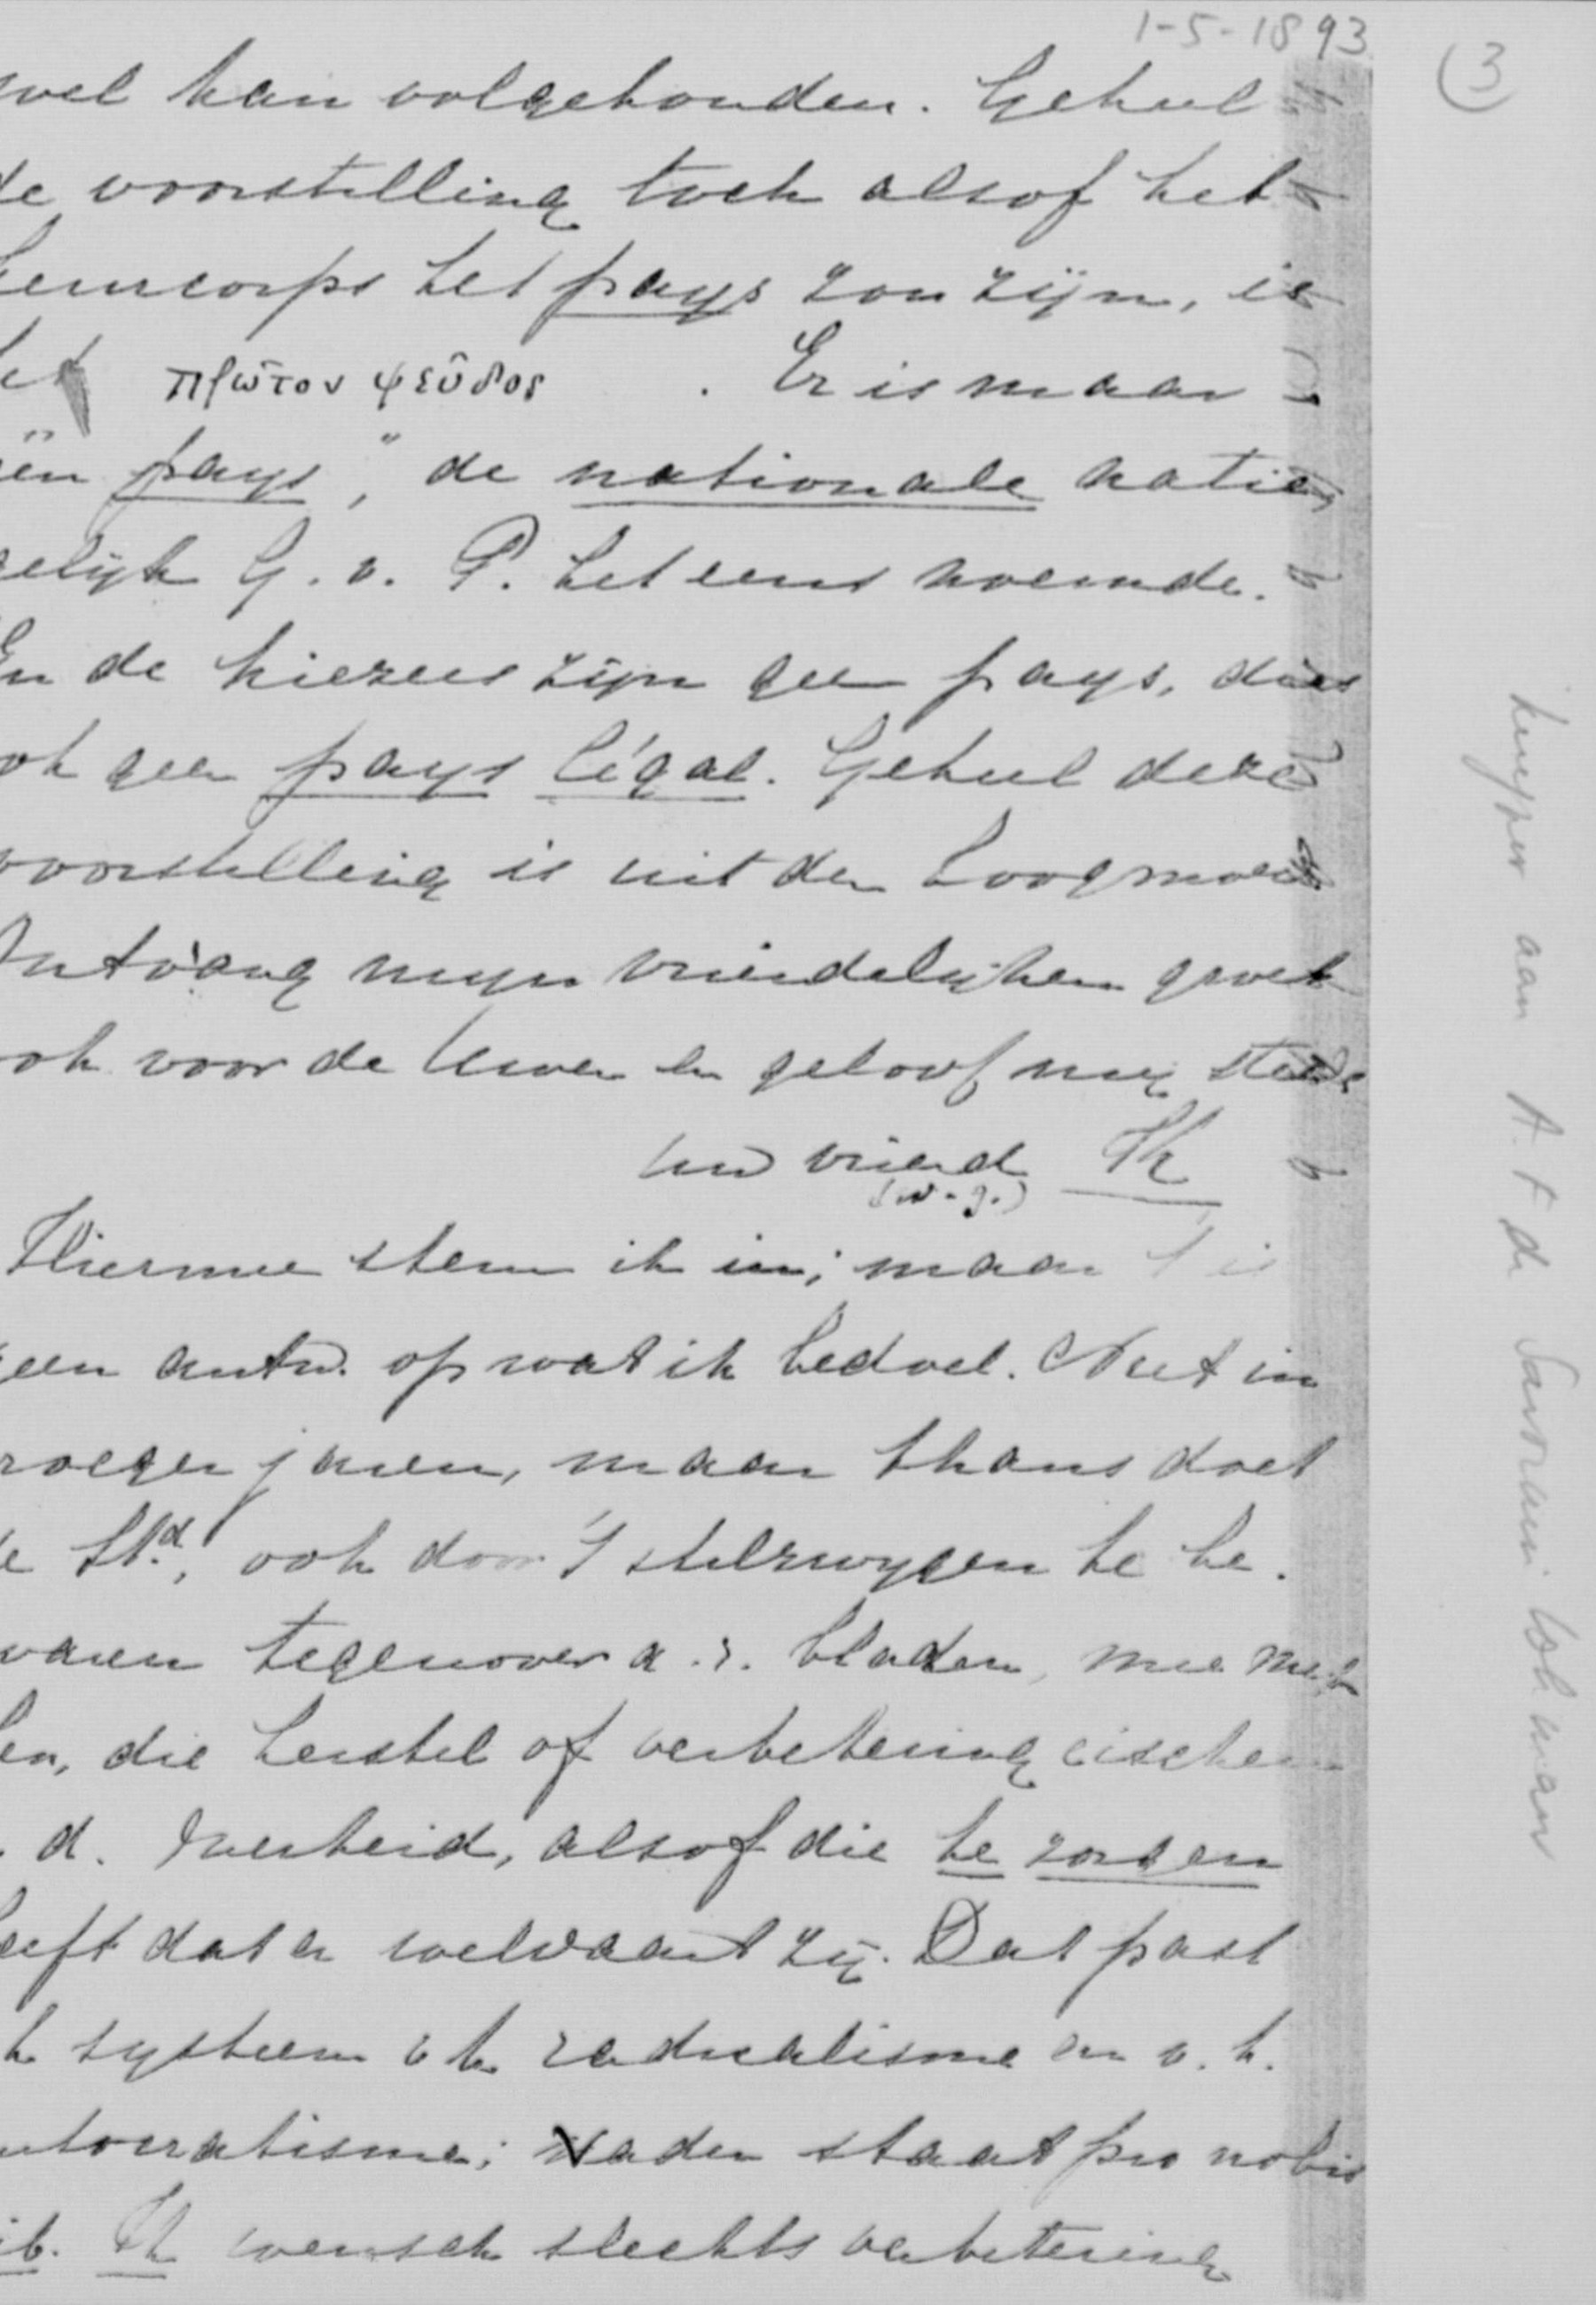 1-5-1893
(3)
wel kan volgehouden. Geheel
de voorstelling toch alsof het
keurcorps het pays zou zijn, is
het πρῶτον ψεῦδος. Er is maar
één "pays", de nationale natie,
gelijk G. v. P. het eens noemde.
En de kiezers zijn geen pays, dus
ook geen pays légal. Geheel deze
voorstelling is uit den hoogmoed
Ontvang mijn vriendelijken groet
ook voor de Uwen en geloof mij steeds
uw vriend
(w.g.)
Hiermee stem ik in; maar 't is
geen antw. op wat ik bedoel. Niet in
vroeger jaren, maar thans doet
de Std, ook door 't stilzwijgen te be-
waren tegenover a.r. bladen, mee met
hen, die herstel of verbetering eischen
v. d. Overheid, alsof die te zorgen
heeft dat er welvaart zij. Dat past
systeem v h radicalisme en v. h.
autocratisme; Vader staat pro nobis
Ik wensch slechts verbetering
Kuyper aan A. F. de Savornin Lohman